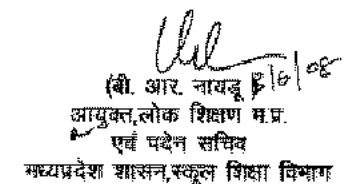 (बी. आर. नायडू) 3/6/08
आयुक्त,लोक शिक्षण म.प्र.
एवं पदेन सचिव
मध्यप्रदेश शासन,स्कूल शिक्षा विभाग